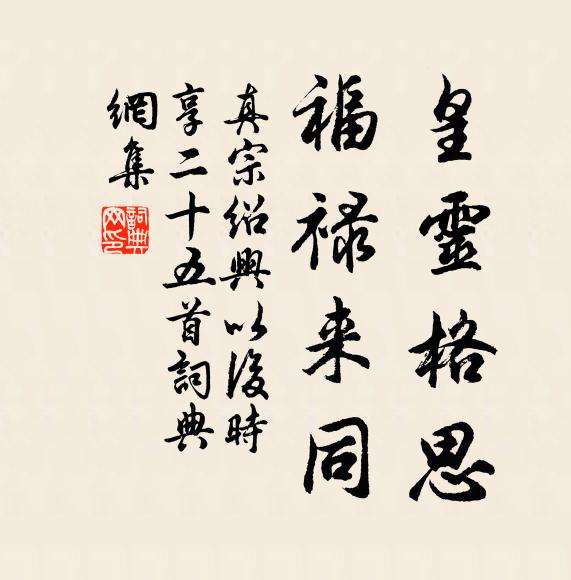 皇靈格思
福祿来同
真宗紹興以後時
享二十五首詞典
網集
詞典網印